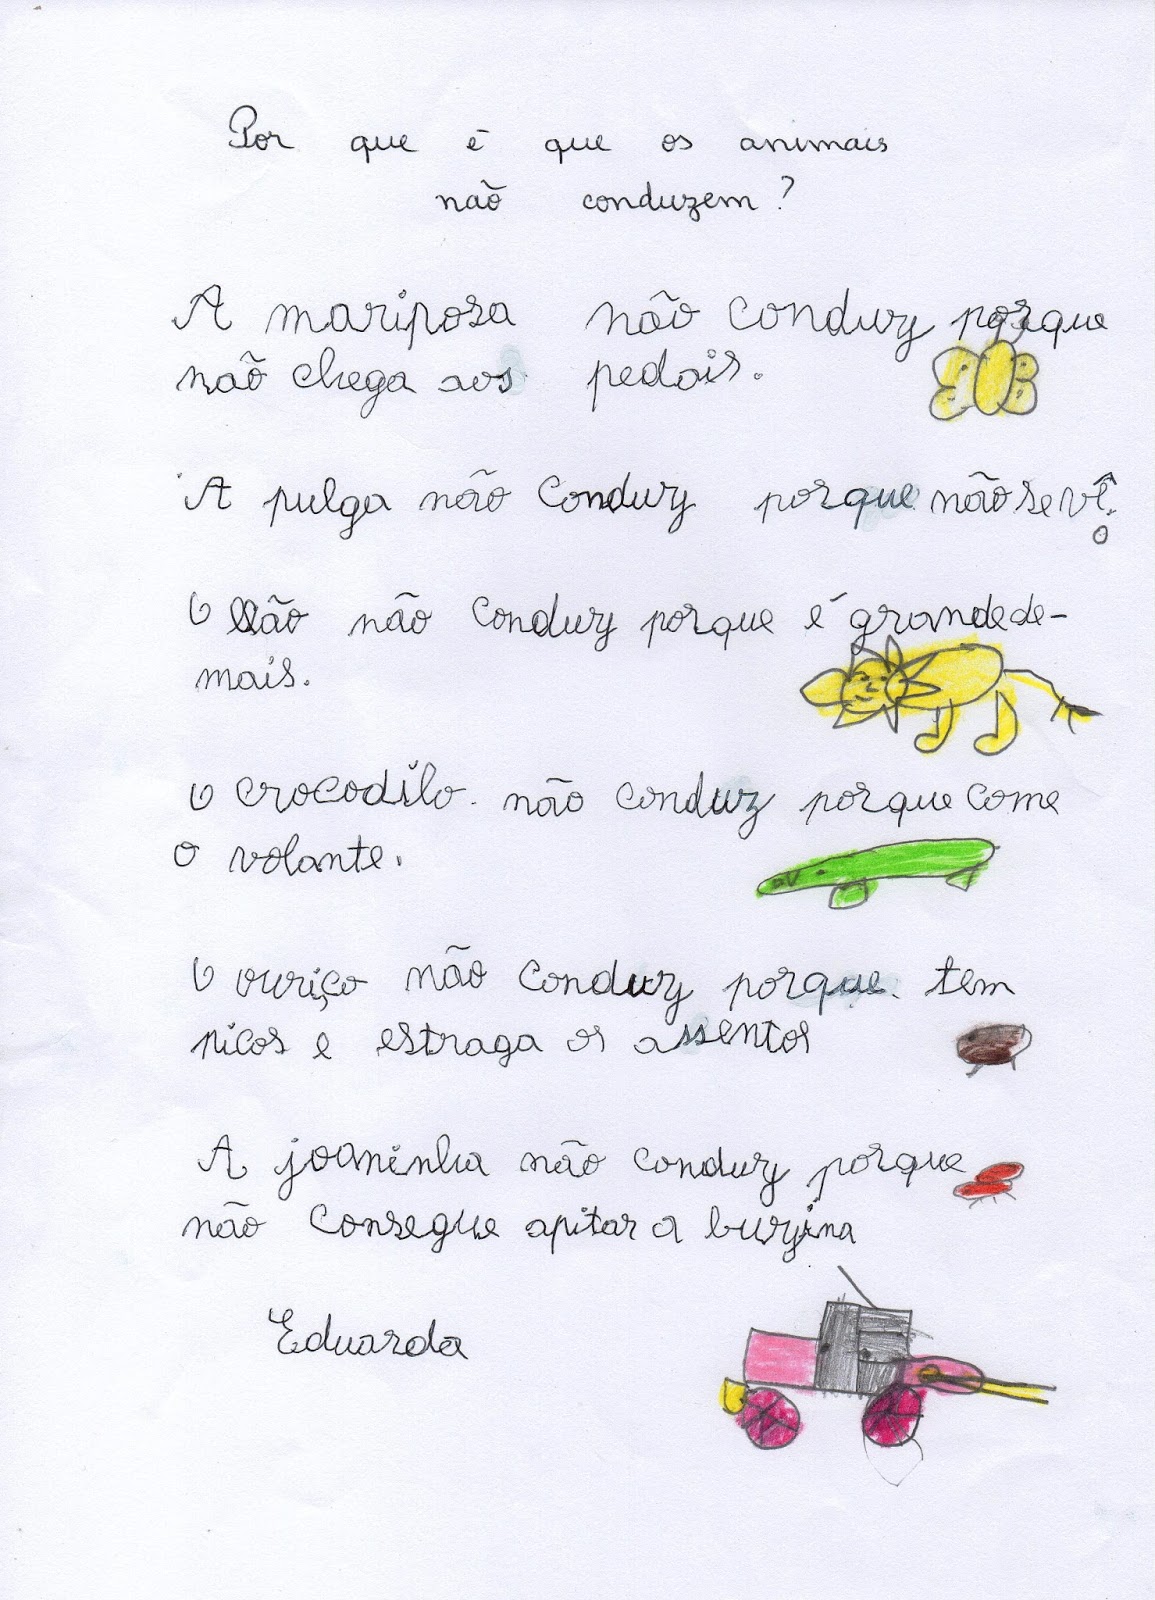 Por que é que os animais
não conduzem?
A mariposa não conduz porque
não chega aos pedais.
A pulga não conduz porque não se vê.
O leão não conduz porque é grande de-
mais.
O crocodilo não conduz porque come
o volante.
O ouriço não conduz porque tem
picos e estraga os assentos
A joaninha não conduz porque
não consegue apitar a buzina
Eduarda